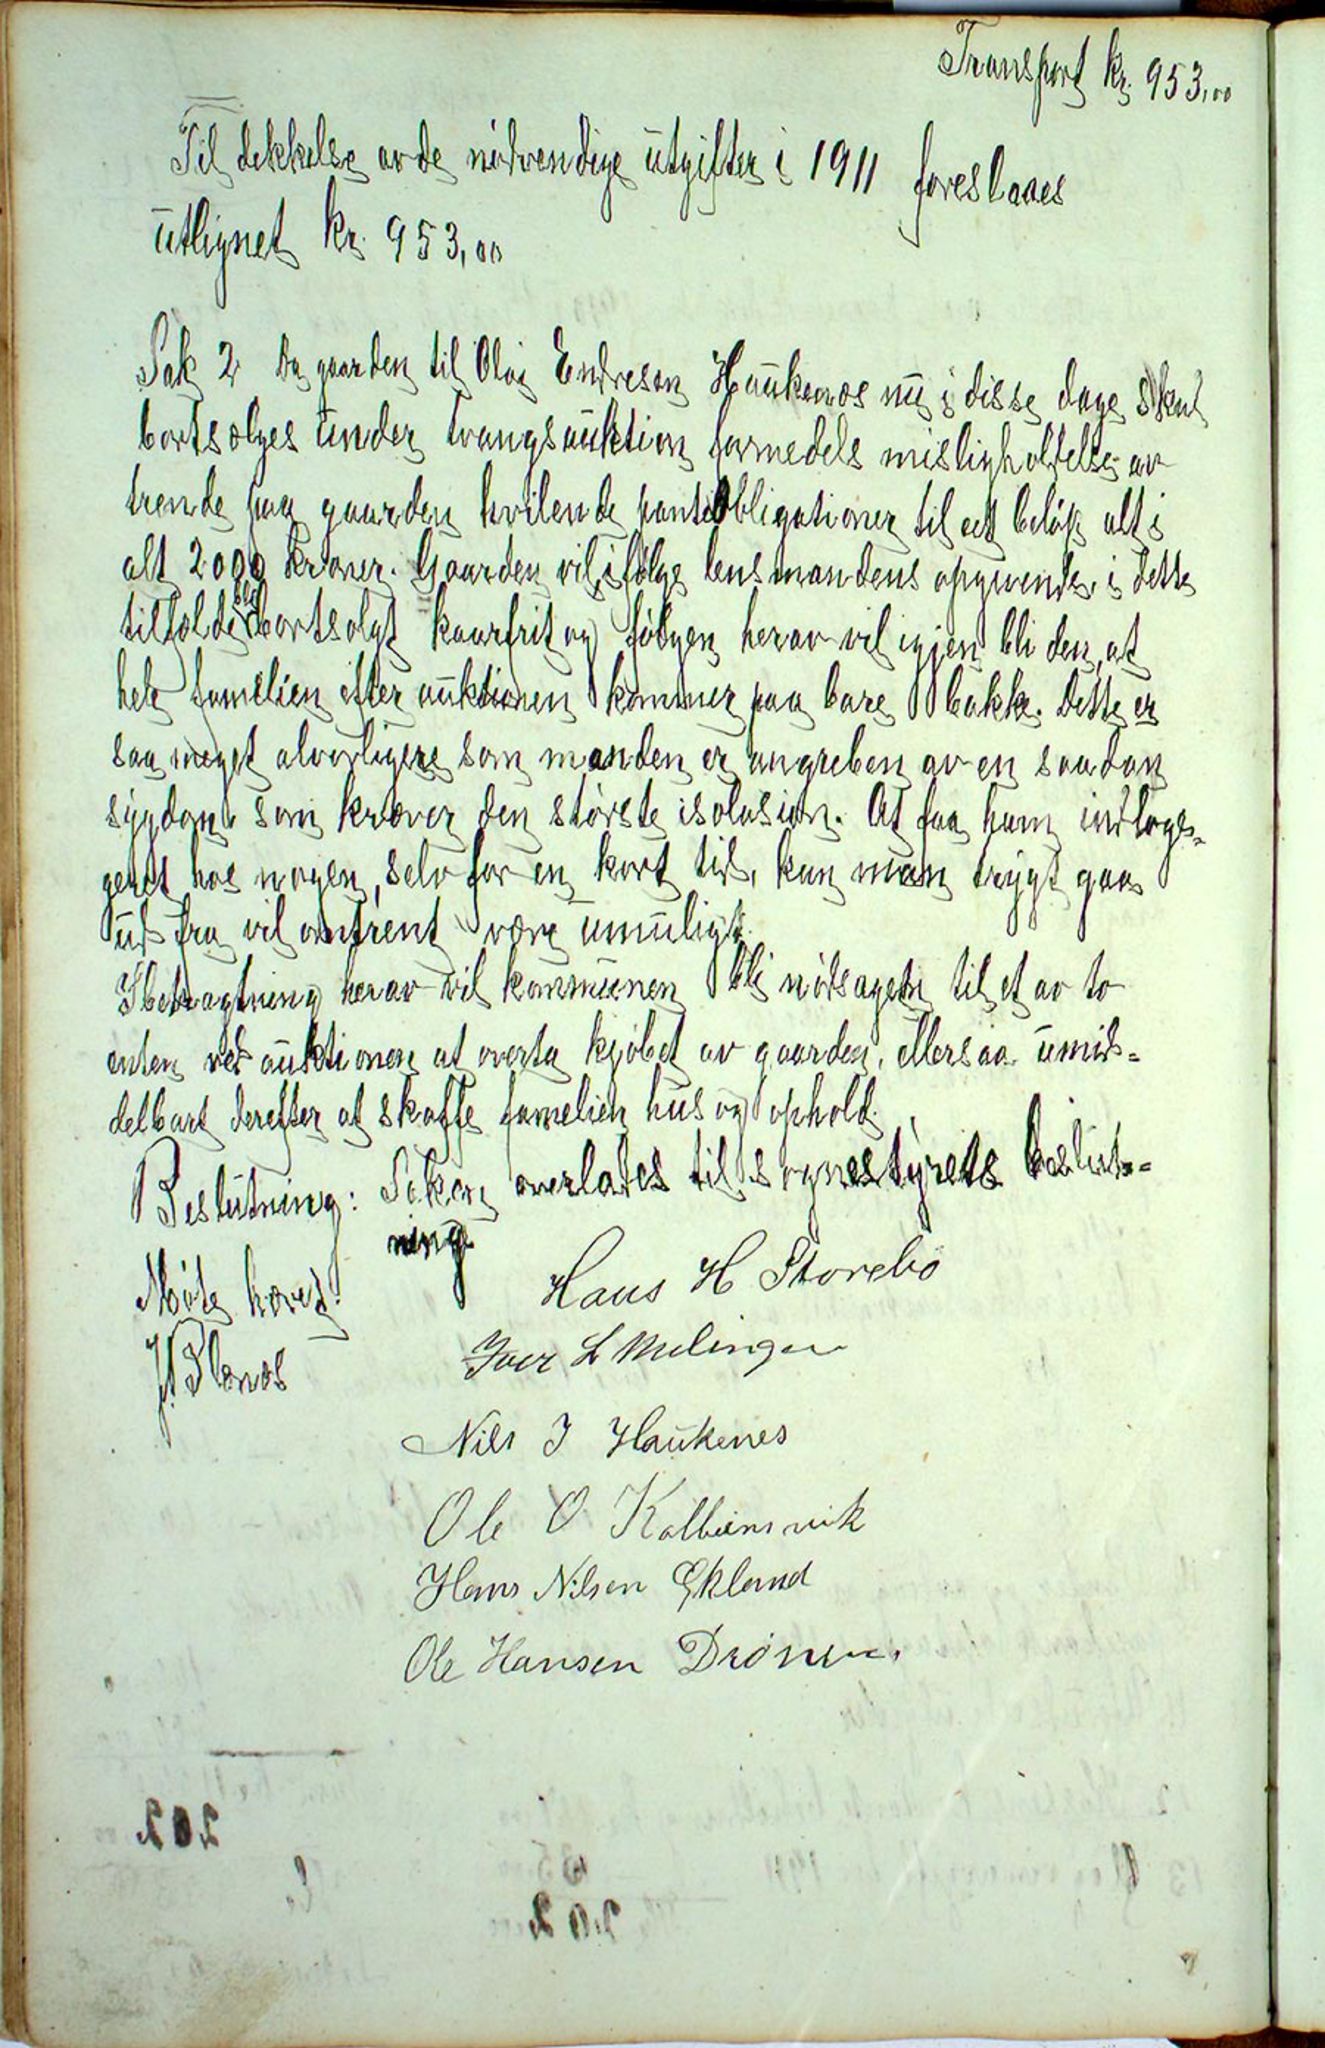 Transport kr. 953,00
Til dekkelse av de nödvendige utgifter i 1911 foreslaaes
utlignet kr. 953,00
Sak 2 Da gaarden til Olai Endresen Haukenæs nu i disse dage skal
bortsælges under tvangsauktion formedels misligholdelse av
trende paa gaarden hvilende panteobligationer til eet beløp alt i
alt 2000 kroner. Gaarden vil ifølge lensmandens opgivende i dette
tilfælde bli bortsolgt kaarfrit og følgen herav vil igjen bli den, at
hele familien efter auktionen kommer paa bare bakke. Dette er
saa meget alvorligere som manden er angreben av en saadan
sygdom som kræver den største isolasion. At faa ham indloge-
geret hos nogen, selv for en kort tid, kan man trygt gaa
ud fra vil omtrent være umuligt.
I betragtning herav vil kommunen bli nødsaget til et av to
enten ved auktionen at overta kjøbet av gaarden, ellersaa umid-
delbart derefter at skaffe familien hus og ophold.
Beslutning: Saken overlades til sognestyrets beslut-
ning
Møte hævet.
Hans H Storebø
Iver L Melingen
Nils J Haukenes
Ole O Kolbeinsvik
Hans Nilsen Ekland
Ole Hansen Drönen.